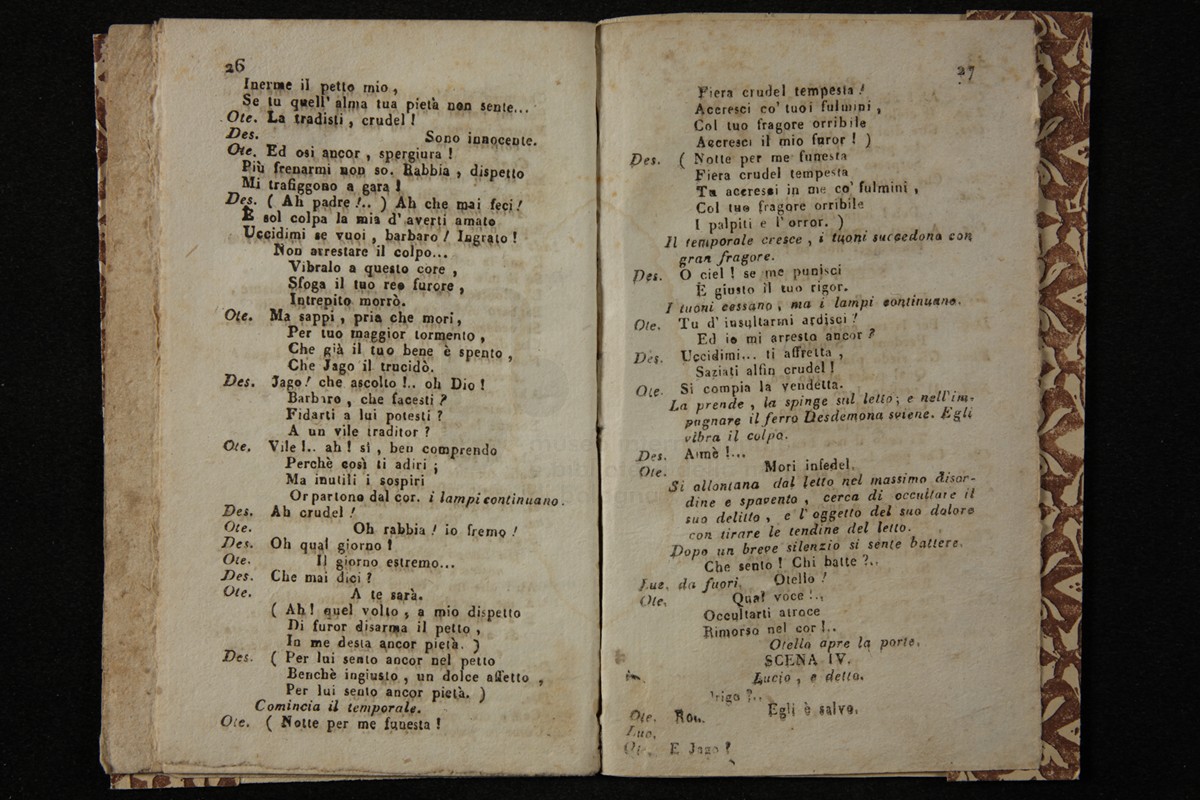 26
Inerme il petto mio,
Se tu quell' alma tua pietà non sente...
Ote. La tradisti, crudel!
Des. Sono innocente.
Ote. Ed osi ancor, spergiura!
Più frenarmi non so. Rabbia, dispetto
Mi trafiggono a gara!
Des. ( Ah padre!.. ) Ah che mai feci!
È sol colpa la mia d' averti amato
Uccidimi se vuoi, barbaro! Ingrato!
Non arrestare il colpo...
Vibralo a questo core,
Sfoga il tuo reo furore,
Intrepito morrò.
Ote. Ma sappi, pria che mori,
Per tuo maggior tormento,
Che già il tuo bene è spento,
Che Jago il trucidò.
Des. Jago! che ascolto!.. oh Dio!
Barbaro, che facesti?
Fidarti a lui potesti?
A un vile traditor?
Ote. Vile!.. ah! sì, ben comprendo
Perchè così ti adiri;
Ma inutili i sospiri
Or partono dal cor. i lampi continuano.
Des. Ah crudel!
Ote. Oh rabbia! io fremo!
Des. Oh qual giorno!
Ote. Il giorno estremo...
Des. Che mai dici?
Ote. A te sarà.
( Ah! quel volto, a mio dispetto
Di furor disarma il petto,
In me desta ancor pietà. )
Des. ( Per lui sento ancor nel petto
Benchè ingiusto, un dolce affetto,
Per lui sento ancor pietà. )
Comincia il temporale.
Ote. ( Notte per me funesta!
27
Fiera crudel tempesta!
Accresci co' tuoi fulmini,
Col tuo fragore orribile
Accresci il mio furor! )
Des. ( Notte per me funesta
Fiera crudel tempesta
Tu accresci in me co' fulmini,
Col tuo fragore orribile
I palpiti e l' orror. )
Il temporale cresce, i tuoni succedono con
gran fragore.
Des. O ciel! se me punisci
È giusto il tuo rigor.
I tuoni cessano, ma i lampi continuano.
Ote. Tu d' insultarmi ardisci!
Ed io mi arresto ancor?
Des. Uccidimi... ti affretta,
Saziati alfin crudel!
Ote. Si compia la vendetta.
La prende, la spinge sul letto; e nell'im-
pugnare il ferro Desdemona sviene. Egli
vibra il colpo.
Des. Aimè!...
Ote. Mori infedel.
Si allontana dal letto nel massimo disor-
dine e spavento, cerca di occultare il
suo delitto, e l' oggetto del suo dolore
con tirare le tendine del letto.
Dopo un breve silenzio si sente battere.
Che sento! Chi batte?..
Luc. da fuori. Otello!
Ote. Qual voce!..
Occultarti atroce
Rimorso nel cor!..
Otello apre la porta.
SCENA IV.
Lucio, e detto.
Egli è salvo.
Ote.
Luc.
Ote. E Jago?